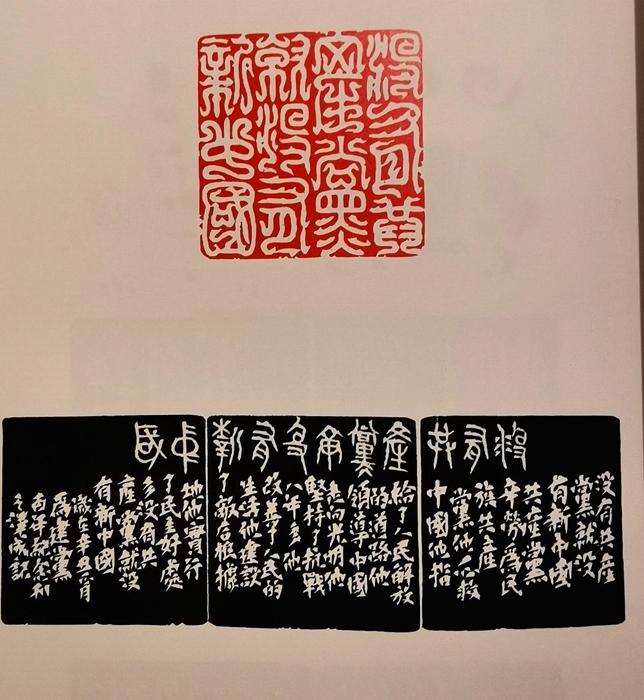 沒有共
產黨
就沒有
新中國
沒有共產黨
有新中國
没有共產
黨就没
有新中國
共產黨
辛勞爲民
族共產
黨他一心救
中國他指
給了人民解放
的道路他
領導中國
走向光明他
堅持了抗戰
八年多他
改善了人民的
生活他建設
了敵后根據
地他實行
了民主好處
多没有共
產黨就没
有新中國
歲在辛丑二月
爲建黨
百年紀念刻